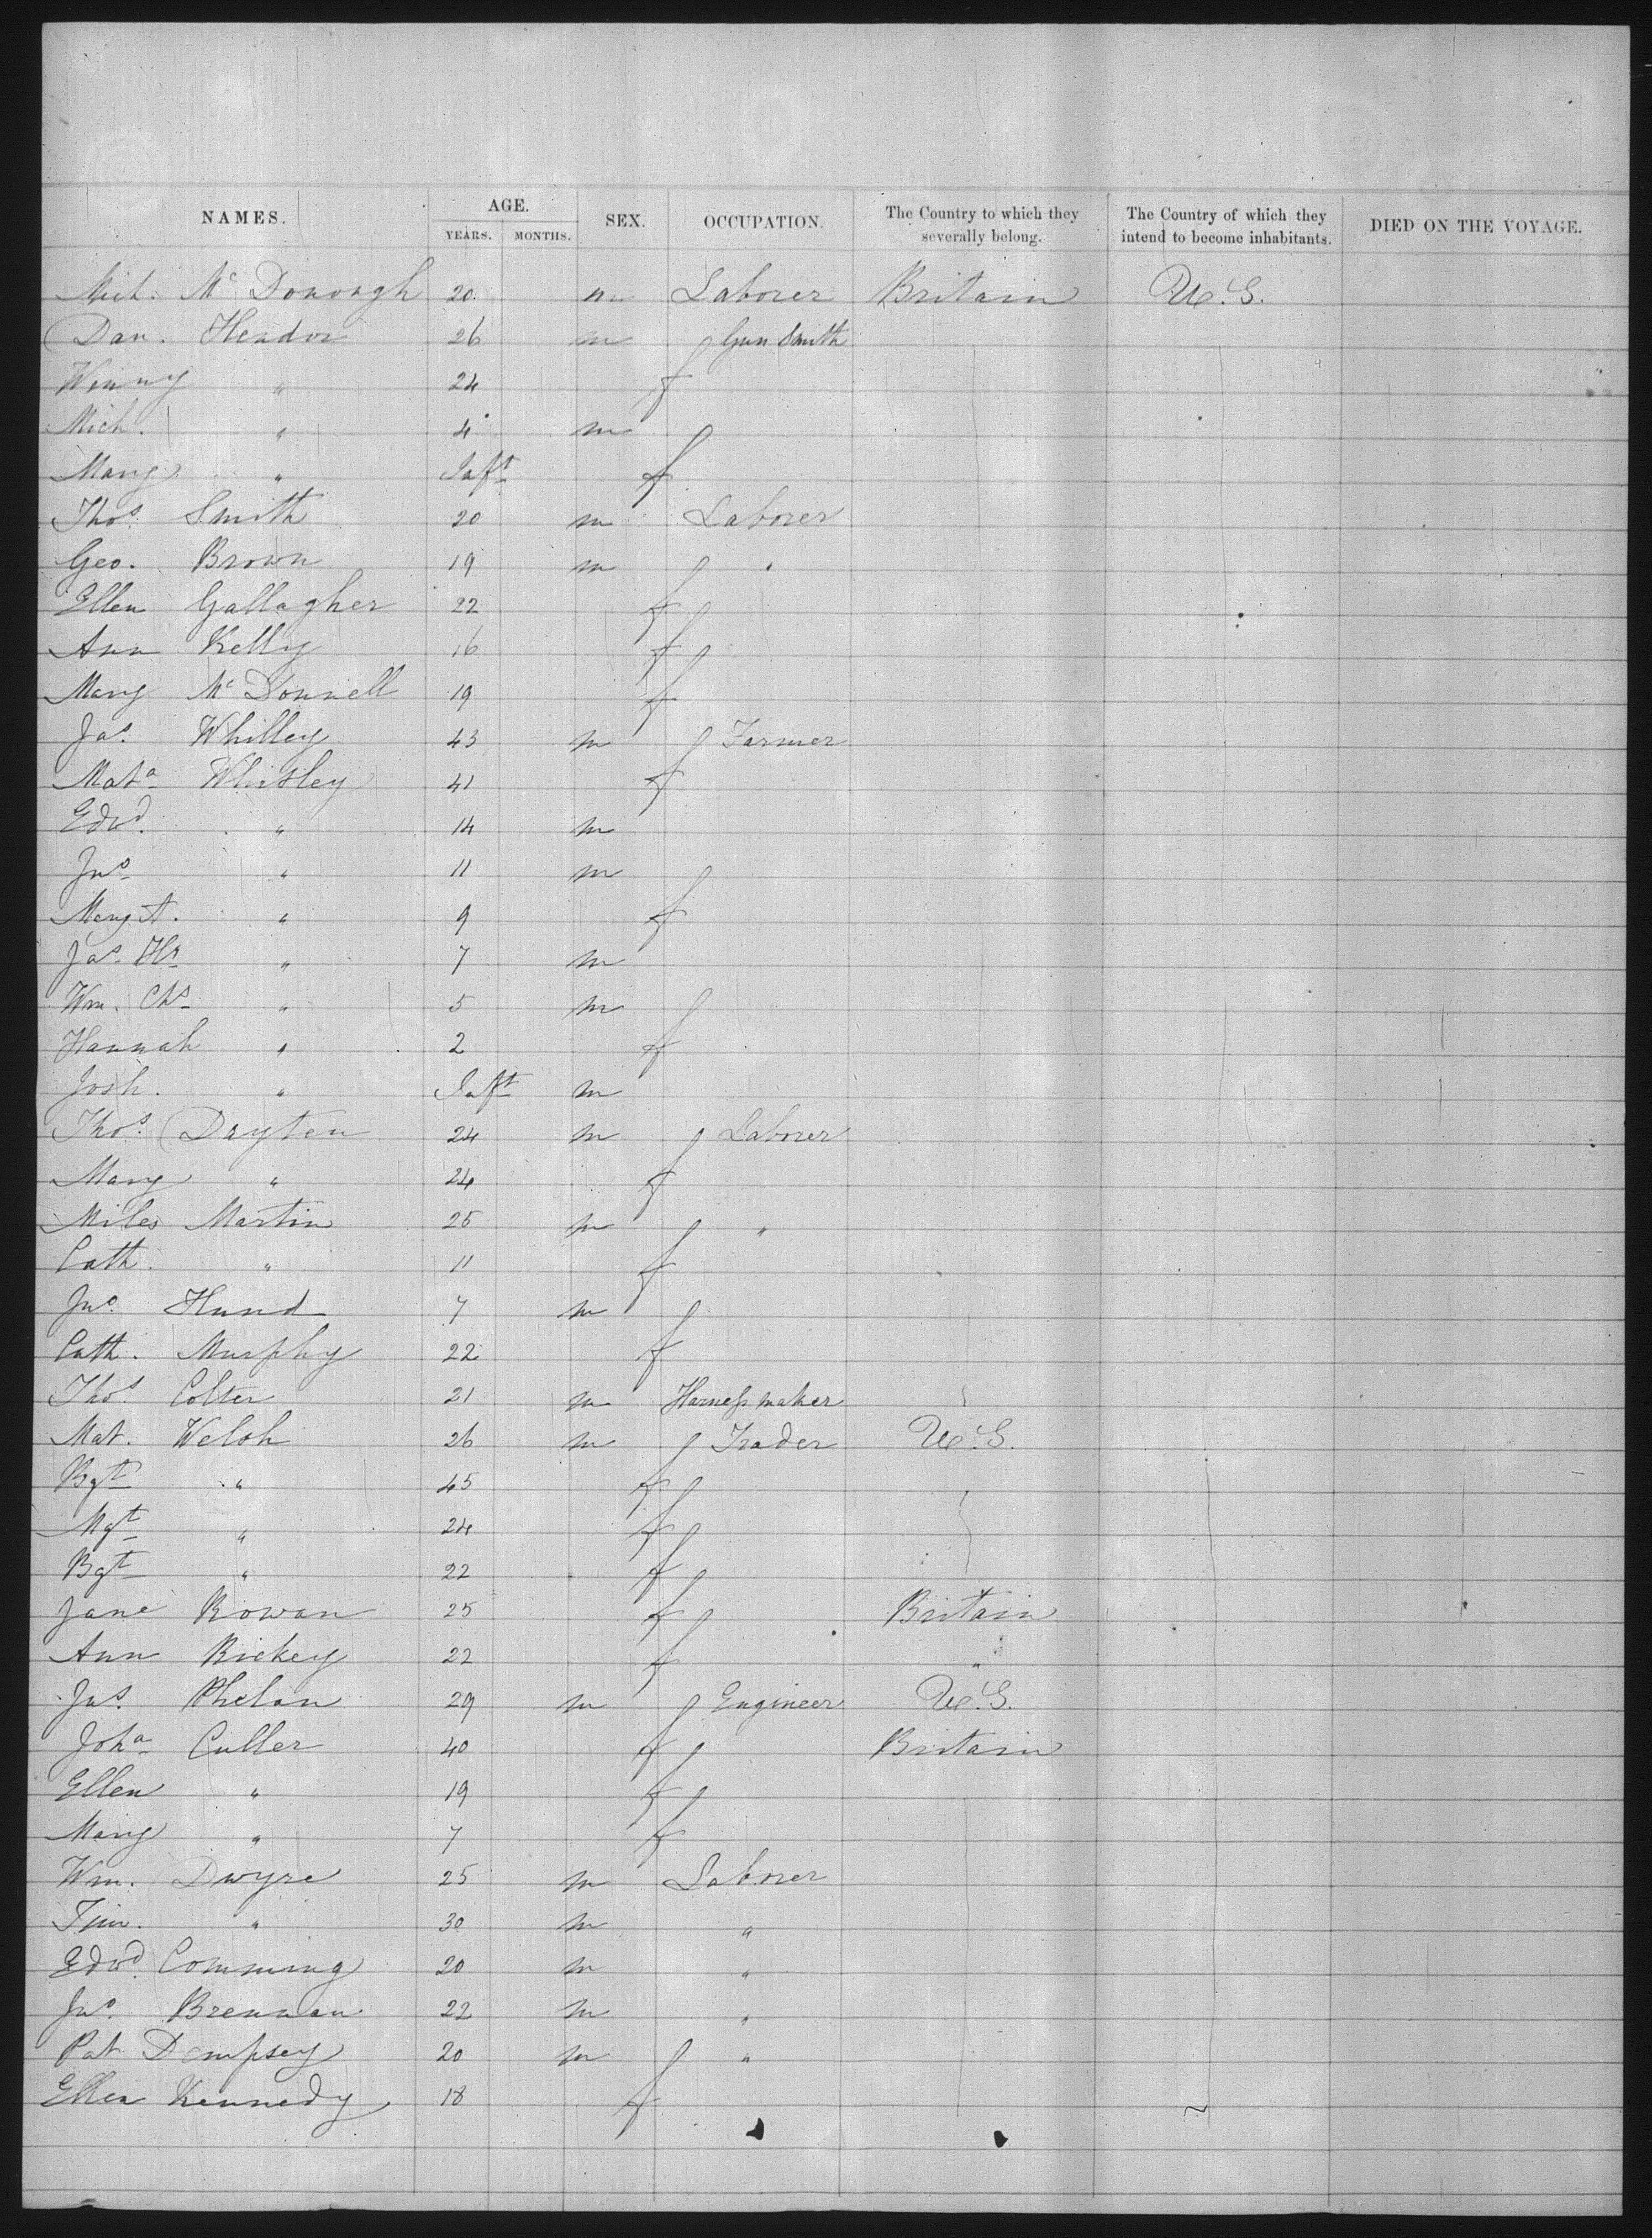 NAMES. AGE. SEX. OCCUPATION. The Country to which they severally belong. The Country of which they intend to become inhabitants. DIED ON THE VOYAGE.
YEARS. MONTHS.
Mich. Mc Donough 20 m Laborer Britain U.S.
Dan. Headon 26 m Gun Smith
Winny " 24 f
Mich. " 4 m
Mary " Inft f
Thos. Smith 20 m Laborer
Geo. Brown 19 m "
Ellen Gallagher 22 f
Ann Kelly 16 f
Mary Mc Donnell 19 f
Jas. Whilley 43 m Farmer
Mata Whitley 41 f
Edwd. " 14 m
Jno " 11 m
Mary A. " 9 f
Jas. Hy " 7 m
Wm. Chs " 5 m
Hannah " 2 f
Josh. " Inft m
Thos. Dayten 24 m Laborer
Mary " 24 f
Miles Martin 25 m "
Cath. " 11 f
Jno. Hund 7 m
Cath. Murphy 22 f
Thos. Colter 21 m Harness maker
Mat. Welsh 26 m Trader U.S.
Bgt " 45 f
Mgt " 24 f
Bgt " 22 f
Jane Rowan 25 f Britain
Ann Rickey 22 f "
Jas. Phelan 29 m Engineer U.S.
Joha Culler 40 f Britain
Ellen " 19 f
Mary " 7 f
Wm. Dwyre 25 m Laborer
Tim. " 30 m "
Edwd. Comming 20 m "
Jno. Brennan 22 m "
Pat Dempsey 20 m "
Ellen Kennedy 18 f